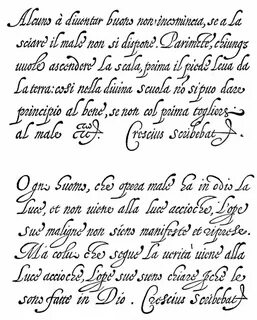 Alcuno à diventar buono non incomincia, se a la
sciare il male non si dispone. Parimẽte, chiunq;
vuole ascendere la scala, prima il piede leva da
la terra: così nella divina scuola nõ si puo dare
principio al bene, se non col prima togliersi
al male etc̃. Crescius scribebat.
Ogni huomo, che opera male ha in odio la
luce, et non viene alla luce accioche, l'ope
sue maligne non sieno manifeste et ripse.
Ma colui che segue la verità viene alla
luce accioche, l'ope sue sieno chiare pche le
sono fatte in Dio. Crescius Scribebat.